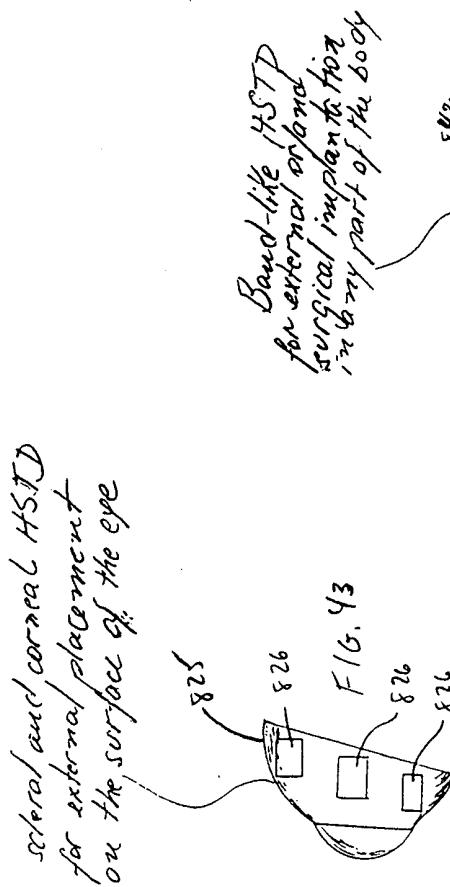 scleral and corneal HSTD
for external placement
on the surface of the eye
825
826
FIG. 43
826
826
Band-like HSTD
for external or/and
surgical implantation
in any part of the body